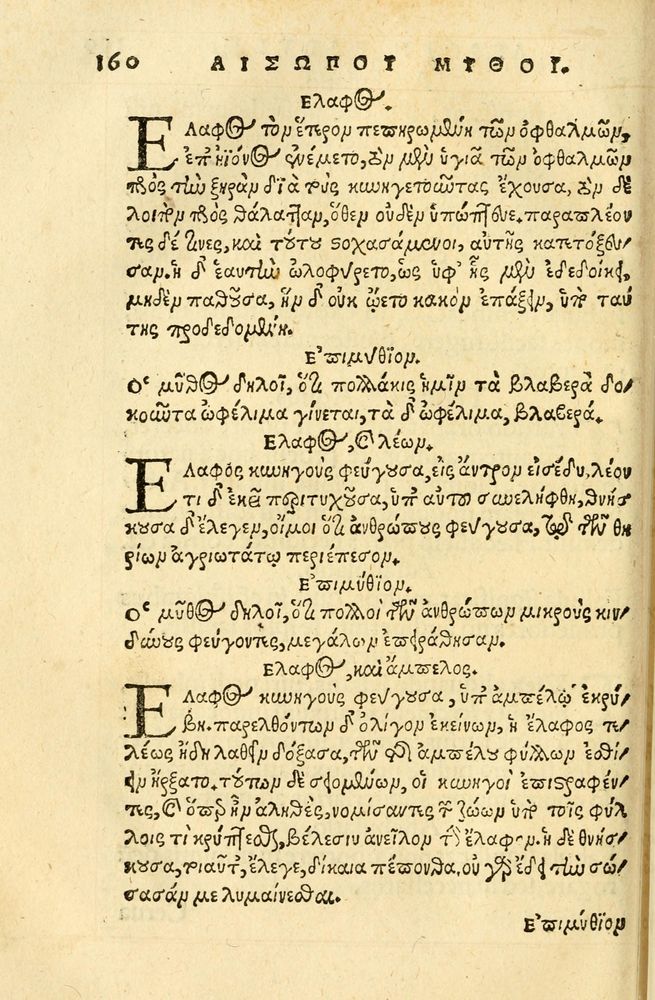 160 ΑΙΣΩΠΟΥ ΜΥΘΟΙ.
Ελαφος.
Ελαφος τὸν ἕτερον πεπηρωμένη τῶν ὀφθαλμῶν,
ἐπ' ἠϊόνος ἐνέμετο, ὃν μὲν ὑγιᾶ τῶν ὀφθαλμῶν
πρὸς τὴν ξηρὰν διὰ τοὺς κυνηγετοῦντας ἔχουσα, ὃν δὲ
λοιπὸν πρὸς θάλατταν, ὅθεν οὐδὲν ὑπώπτευε. παραπλέον
τες δέ τινες, καὶ τούτου στοχασάμενοι, αὐτῆς κατετόξευ-
σαν. ἡ δ' ἑαυτὴν ὠλοφύρετο, ὡς ὑφ' ἧς μὲν ἐδεδοίκει,
μηδὲν παθοῦσα, ἣν δ' οὐκ ᾤετο κακὸν ἐπάξειν, ὑπὸ ταύ
της προδεδομένη.
Επιμύθιον.
Ο μῦθος δηλοῖ, ὅτι πολλάκις ἡμῖν τὰ βλαβερὰ δο-
κοῦντα ὠφέλιμα γίνεται, τὰ δ' ὠφέλιμα, βλαβερά.
Ελαφος, καὶ λέων.
Ελαφος κυνηγοὺς φεύγουσα, εἰς ἄντρον εἰσέδυ, λέον
τι δ' ἐκεῖ περιτυχοῦσα, ὑπ' αὐτοῦ συνελήφθη, θνήσ
κουσα δ' ἔλεγεν, οἴμοι ὅτι ἀνθρώπους φεύγουσα, τῷ τῶν θη
ρίων ἀγριωτάτῳ περιέπεσον.
Επιμύθιον.
Ο μῦθος δηλοῖ, ὅτι πολλοὶ τῶν ἀνθρώπων μικροὺς κιν-
δύνους φεύγοντες, μεγάλων ἐπειράθησαν.
Ελαφος, καὶ ἄμπελος.
Ελαφος κυνηγοὺς φεύγουσα, ὑπ' ἀμπέλῳ ἐκρύ-
βη. παρελθόντων δ' ὀλίγον ἐκείνων, ἡ ἔλαφος τε-
λέως ἤδη λαθεῖν δόξασα, τῶν τῆς ἀμπέλου φύλλων ἐσθί-
ειν ἤρξατο. τούτων δὲ σειομένων, οἱ κυνηγοὶ ἐπιστραφέν-
τες, καὶ ὅπερ ἦν ἀληθές, νομίσαντες τῶν ζώων ὑπὸ τοῖς φύλ
λοις τι κρύπτεσθαι, βέλεσιν ἀνεῖλον τὴν ἔλαφον. ἡ δὲ θνήσ-
κουσα, τοιαῦτ' ἔλεγε, δίκαια πέπονθα, οὐ γὰρ ἔδει τὴν σώ-
σασάν με λυμαίνεσθαι.
Επιμύθιον